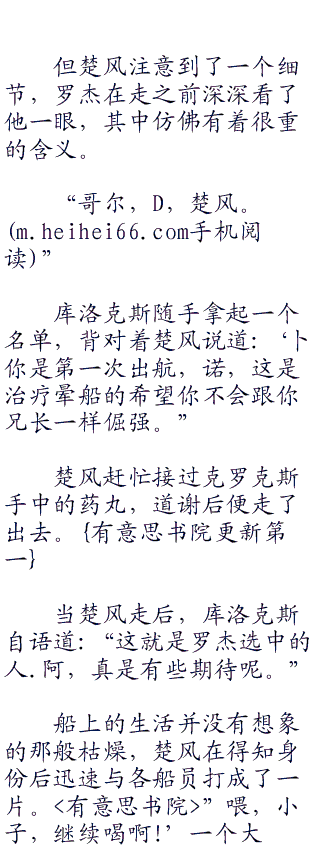 但楚风注意到了一个细
节，罗杰在走之前深深看了
他一眼，其中仿佛有着很重
的含义。
“哥尔，D，楚风。
(m.heihei66.com手机阅
读)”
库洛克斯随手拿起一个
名单，背对着楚风说道：‘卜
你是第一次出航，诺，这是
治疗晕船的希望你不会跟你
兄长一样倔强。”
楚风赶忙接过克罗克斯
手中的药丸，道谢后便走了
出去。{有意思书院更新第
一}
当楚风走后，库洛克斯
自语道：“这就是罗杰选中的
人.阿，真是有些期待呢。”
船上的生活并没有想象
的那般枯燥，楚风在得知身
份后迅速与各船员打成了一
片。<有意思书院>”喂，小
子，继续喝啊!’一个大